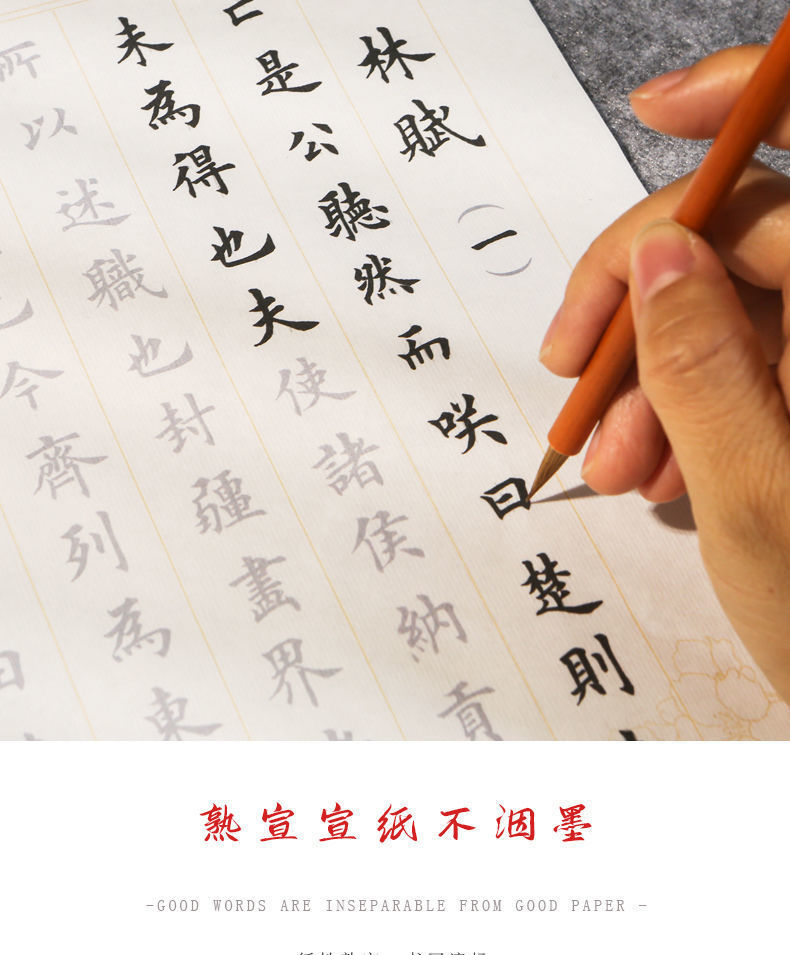 林賦（一）
是公聽然而咲曰楚則
未為得也夫使諸侯納貢
所以述職也封疆畫界
也今齊列為東
熟宣宣纸不洇墨
-GOOD WORDS ARE INSEPARABLE FROM GOOD PAPER -